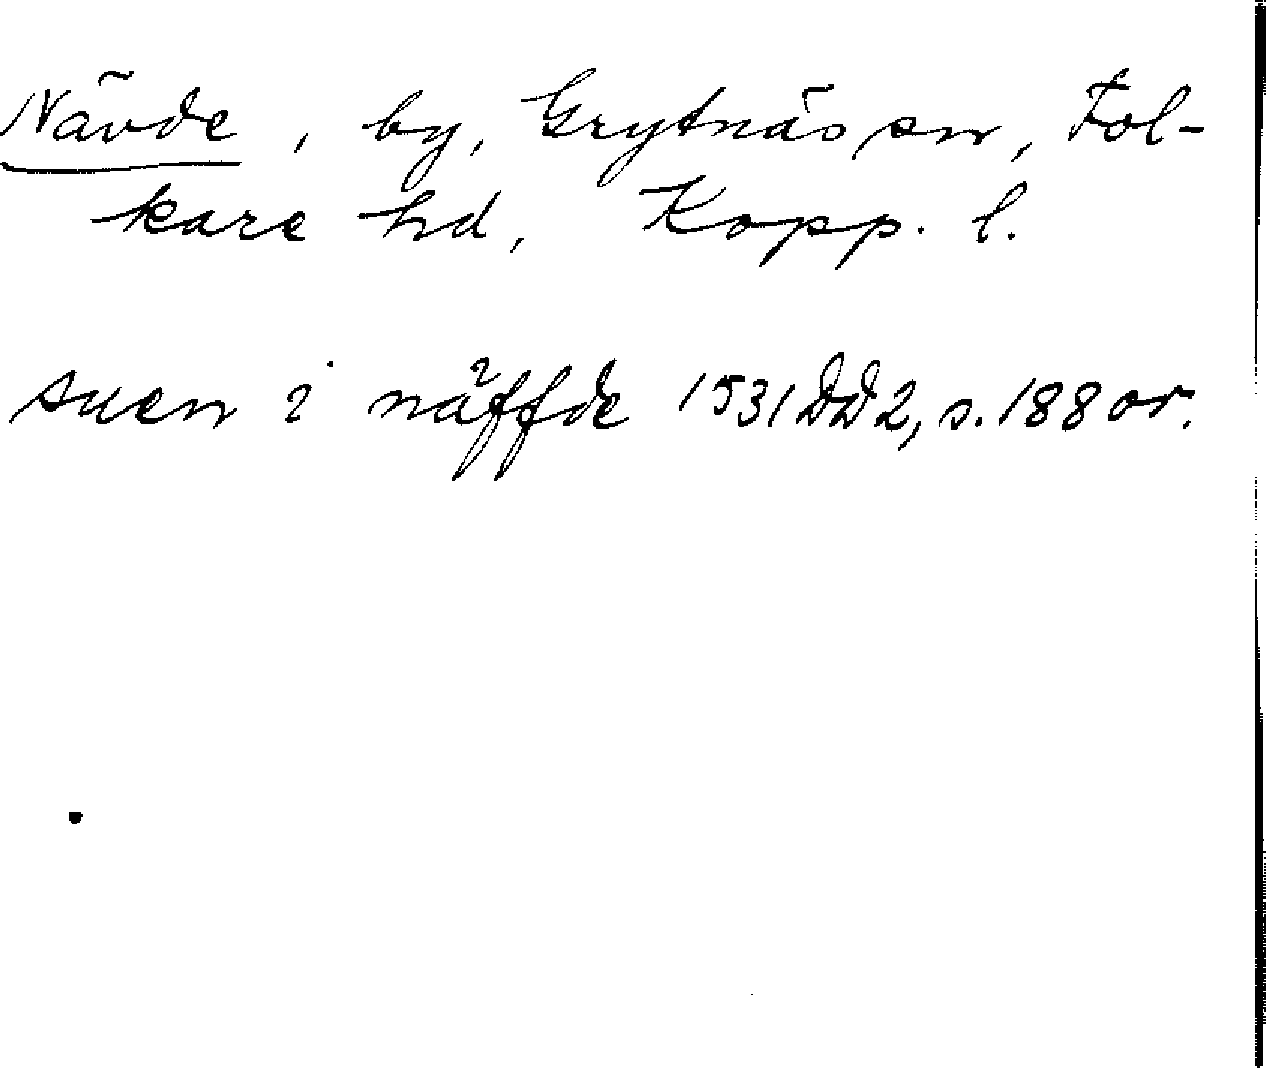 Nävde, by, Grytnäs sn, Fol-
kare hd, Kopp. l.
suen i näffde 1531 DD 2, s. 188 or.